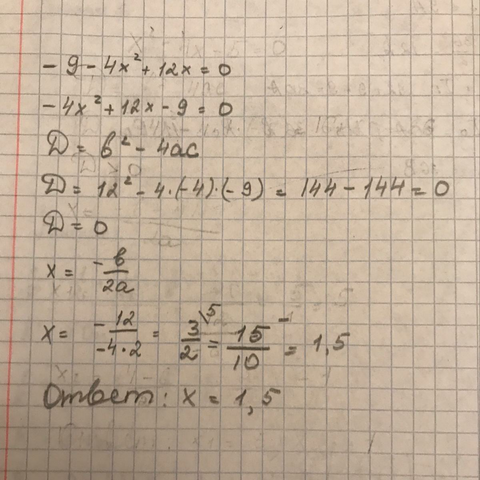 - 9 - 4x² + 12x = 0
- 4x² + 12x - 9 = 0
D = b² - 4ac
D = 12² - 4·(-4)·(-9) = 144 - 144 = 0
D = 0
x = -b/2a
x = -12/-4·2 = 3/2 \5 = 15/10 = 1,5
Ответ: x = 1,5